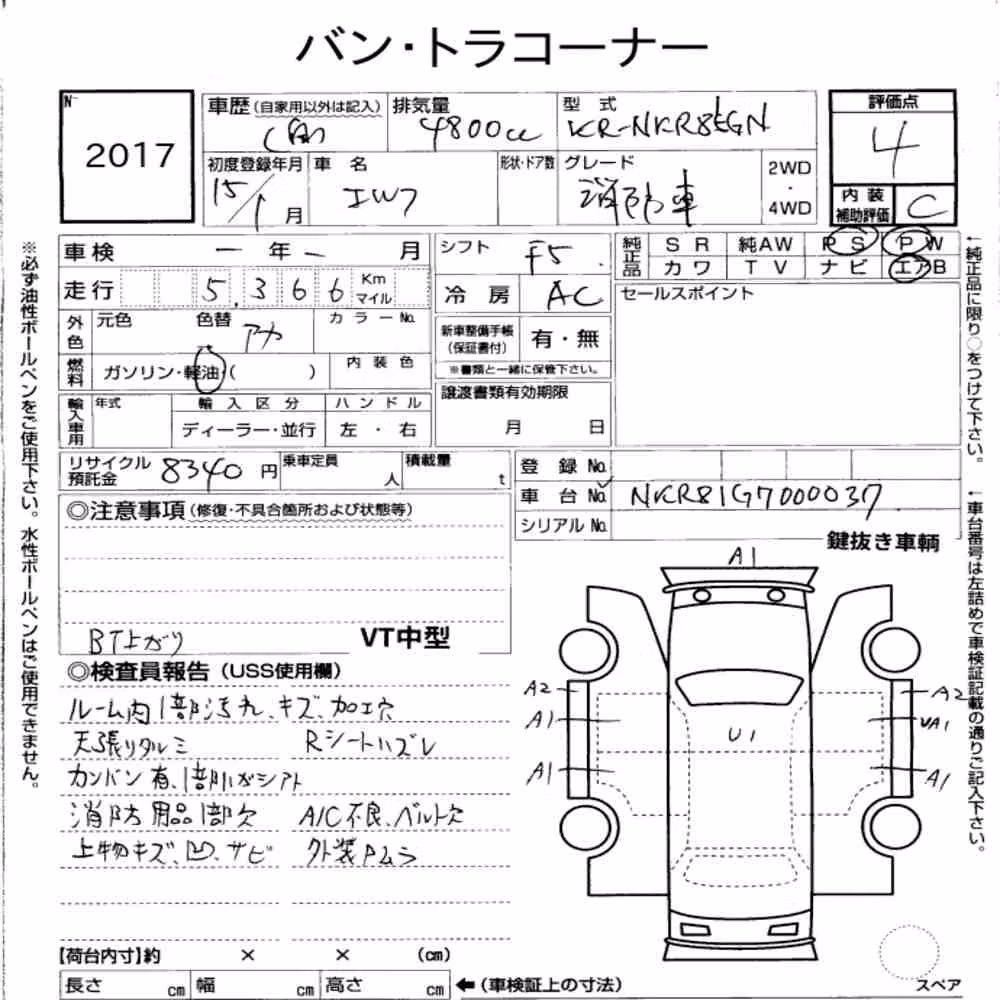 バン・トラコーナー
No
2017
車歴 (自家用以外は記入)
排気量
4800cc
型 式
KR-NKR81GN
評価点
4
初度登録年月
15/1月
車 名
エルフ
形状・ドア数
グレード
消防車
2WD
・
4WD
内 装
補助評価
C
車検 ー 年 ー 月
シフト
F5
純正品
S R
純AW
P S
P W
カ ワ
T V
ナ ビ
エアB
走行 5,366 Km マイル
冷 房
AC
セールスポイント
外色
元色
色替
アカ
カラーNo.
新車整備手帳
(保証書付)
有・無
※書類と一緒に保管下さい。
燃料
ガソリン・軽油( )
内 装 色
輸入車用
年式
輸 入 区 分
ハ ン ド ル
ディーラー・並行
左 ・ 右
譲渡書類有効期限
月 日
リサイクル
預託金
8340円
乗車定員
人
積載量
t
登 録 No.
車 台 No.
NKR81G7000037
シリアル No.
鍵抜き車輌
◎注意事項(修復・不具合箇所および状態等)
BT上がり
VT中型
◎検査員報告(USS使用欄)
ルーム内1部汚れ、キズ、加工穴
天張りタルミ
Rシートハズレ
カンバン有、1部
消防用品1部欠
A/C不良、ベルト欠
上物キズ、凹、サビ
外装Pムラ
A1
A2
A1
A1
U1
A2
UA1
A1
スペア
【荷台内寸】約 × × (cm)
長さ cm
幅 cm
高さ cm
←(車検証上の寸法)
※必ず油性ボールペンをご使用下さい。水性ボールペンはご使用できません。
←純正品に限り○をつけて下さい。
←車台番号は左詰めで車検証記載の通りご記入下さい。